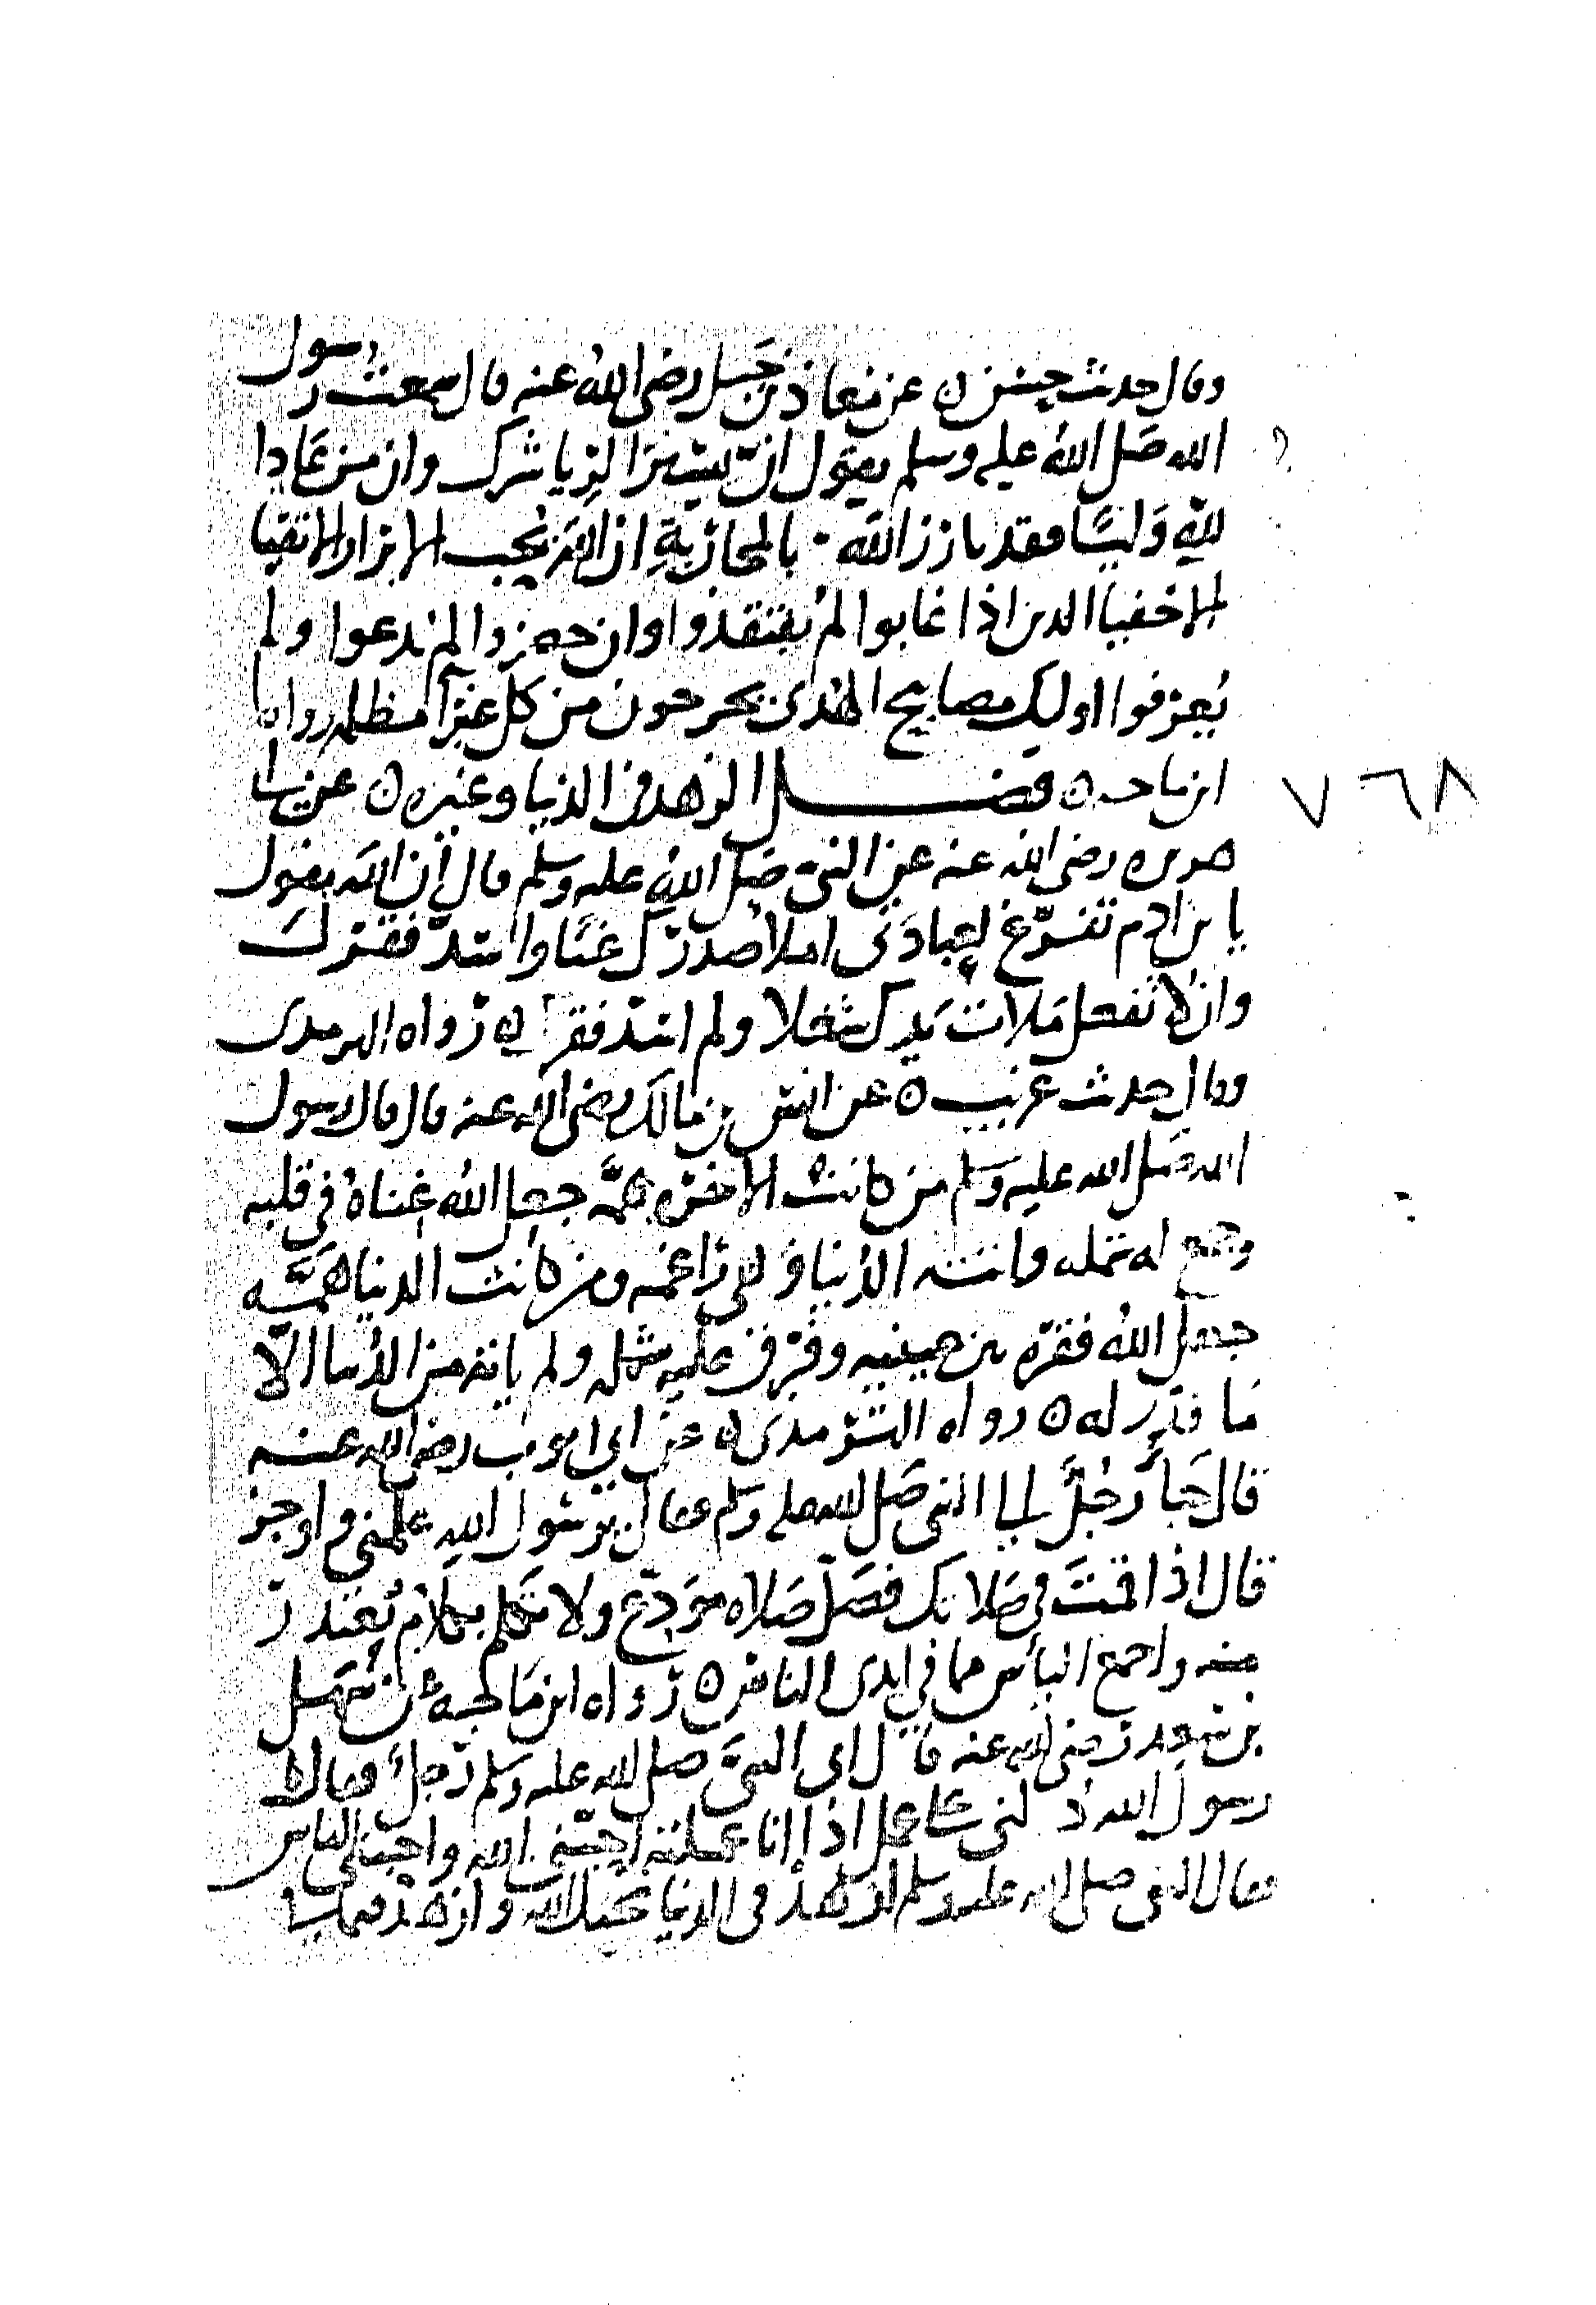 وقال حديث حسن ٥ عن معاذ بن جبل رضي الله عنه قال سمعت رسول
الله صلى الله عليه وسلم يقول ان يسير الريا شرك وان من عادا
لله وليا فقد بارز الله بالمحاربة ان الله يحب الابرار الاتقيا
الاخفيا الدين اذا غابوا لم يفتقدوا وان حضروا لم يدعوا ولم
يعرفوا اوليك مصابيح الهدى يخرجون من كل غبرآ مظلمه رواها
ابن ماجه ٥ فصل الزهد في الدنيا وغيره ٥ عن ابي
هريره رضي الله عنه عن النبي صلى الله عليه وسلم قال ان الله يقول
يا بن ادم تفرغ لعبادتي املا صدرك غنا واسد فقرك
وان لا تفعل ملات يدك شغلا ولم اسد فقرك رواه الترمدى
وقال حديث غريب ٥ عن انس بن مالك رضي الله عنه قال قال رسول
الله صلى الله عليه وسلم من كانت الاخره همه جعل الله غناه في قلبه
وجمع له شمله واتته الدنيا وهي راغمه ومن كانت الدنيا همه
جعل الله فقره بين عينيه وفرق عليه شمله ولم ياته من الدنيا الا
ما قدر له ٥ رواه الترمدى ٥ عن ابي ايوب رضي الله عنه
قال جا رجل الى النبي صلى الله عليه وسلم فقال يرسول الله علمني واوجز
قال اذا قمت في صلاتك فصل صلاه مودع ولا تكلم بكلام يعتذر
منه واجمع اليأس مما في ايدى الناس ٥ رواه ابن ماجه عن سهل
بن سعد رضي الله عنه قال اتى النبي صلى الله عليه وسلم رجل فقال يا
رسول الله دلني على عمل اذا انا عملته احبني الله واحبني الناس
فقال النبي صلى الله عليه وسلم ازهد في الدنيا يحبك الله وازهد فيما
٧٦٨